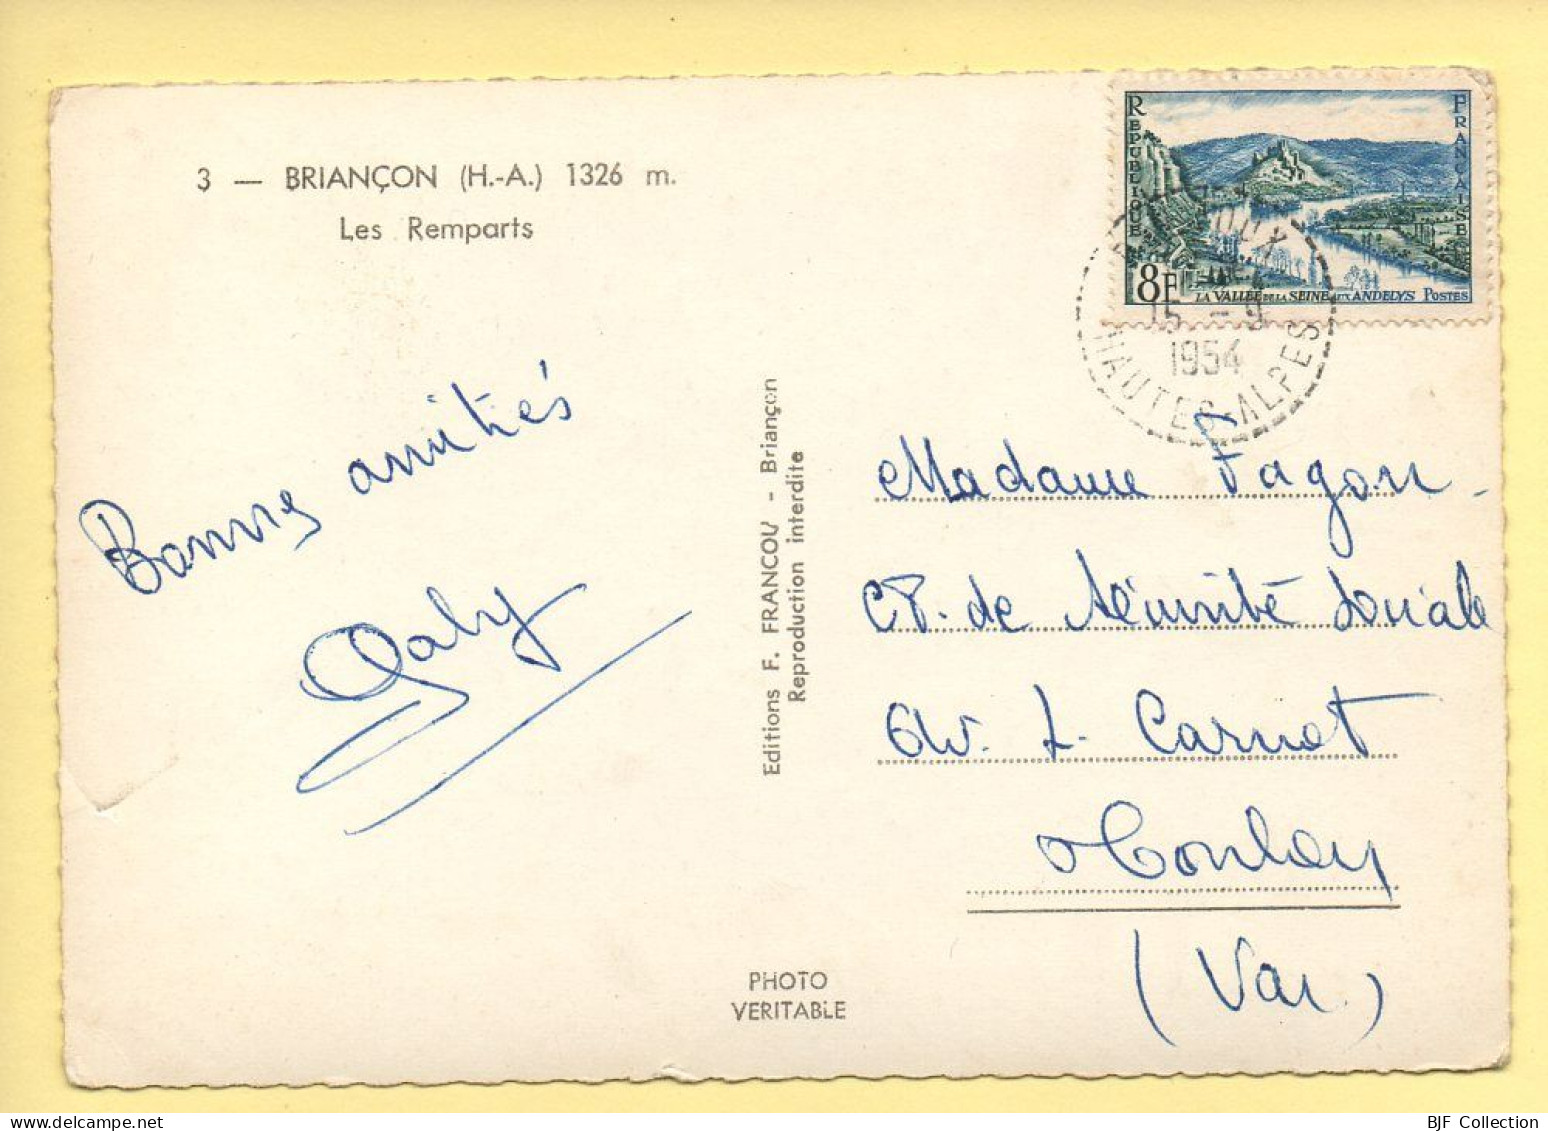 3 — BRIANÇON (H.-A.) 1326 m.
Les Remparts
Bonnes amitiés
Gaby
Editions F. FRANCOU - Briançon
Reproduction interdite
PHOTO
VERITABLE
RÉPUBLIQUE FRANÇAISE
8F LA VALLÉE DE LA SEINE AUX ANDELYS POSTES
15 - 9
1954
HAUTES-ALPES
Madame Fagon
de Sécurité Sociale
av. L. Carnot
Toulon
(Var)
BJF Collection